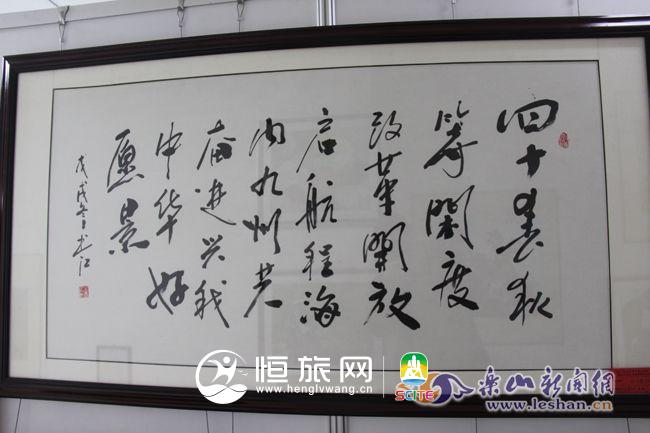 四十春秋
等閑度
改革開放
启航程海
内九州共
奋進兴我
中华好
愿景
戊戌冬
恒旅网
www.henglvwang.cn
SCITE
乐山新闻網
www.leshan.cn